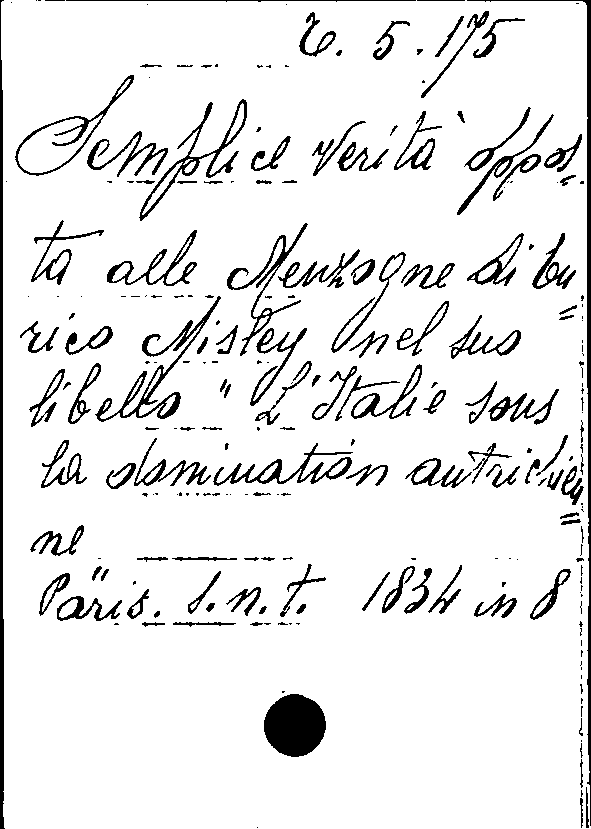 6. 5. 175
Semplice verità oppos=
ta alle Menzogne di En=
rico Misley nel suo
libello "L'Italie sous
la domination autrichien=
ne"
Paris. s.n.t. 1834 in 8